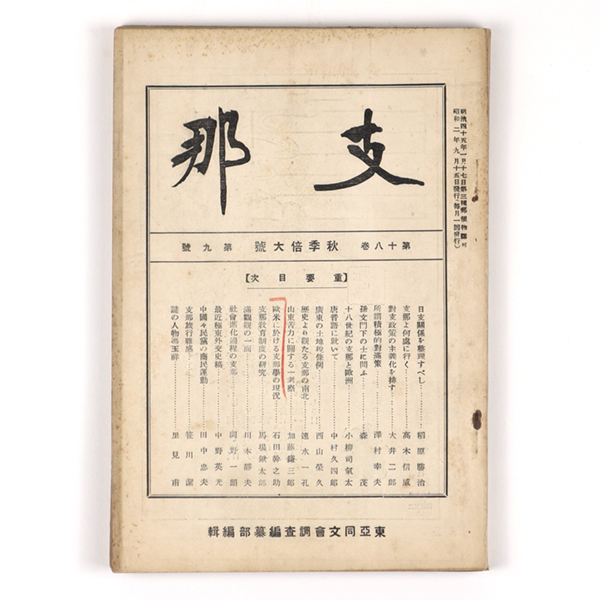 支那
第十八巻 秋季倍大號 第九號
【重要目次】
日支關係を整理すべし……稻原勝治
支那よ何處に行く……高木信威
對支政策の主義化を排す……大井二郎
所謂積極的對滿策……澤村幸夫
孫文門下の士に問ふ……森茂
十八世紀の支那と歐洲……小柳司氣太
唐音語に就いて……中村久四郎
廣東の土地稅條例……西山榮久
歷史より觀たる支那の南北……速水一孔
山東苦力に關する一考察……加藤鎌三郎
歐米に於ける支那學の現況……石田幹之助
支那敎育制度の硏究……馬場鍬太郎
滿觀觀の一面……川本靜夫
社會進化過程の支那……一韻
最近極東外交史稿……中野英光
中國々民黨の農民運動……田中忠夫
支那旅行雜感……笹川潔
謎の人物馮玉祥……里見甫
東亞同文會調査編纂部編輯
明治四十五年一月十七日第三種郵便物認可
昭和二年九月十五日發行(每月一回發行)